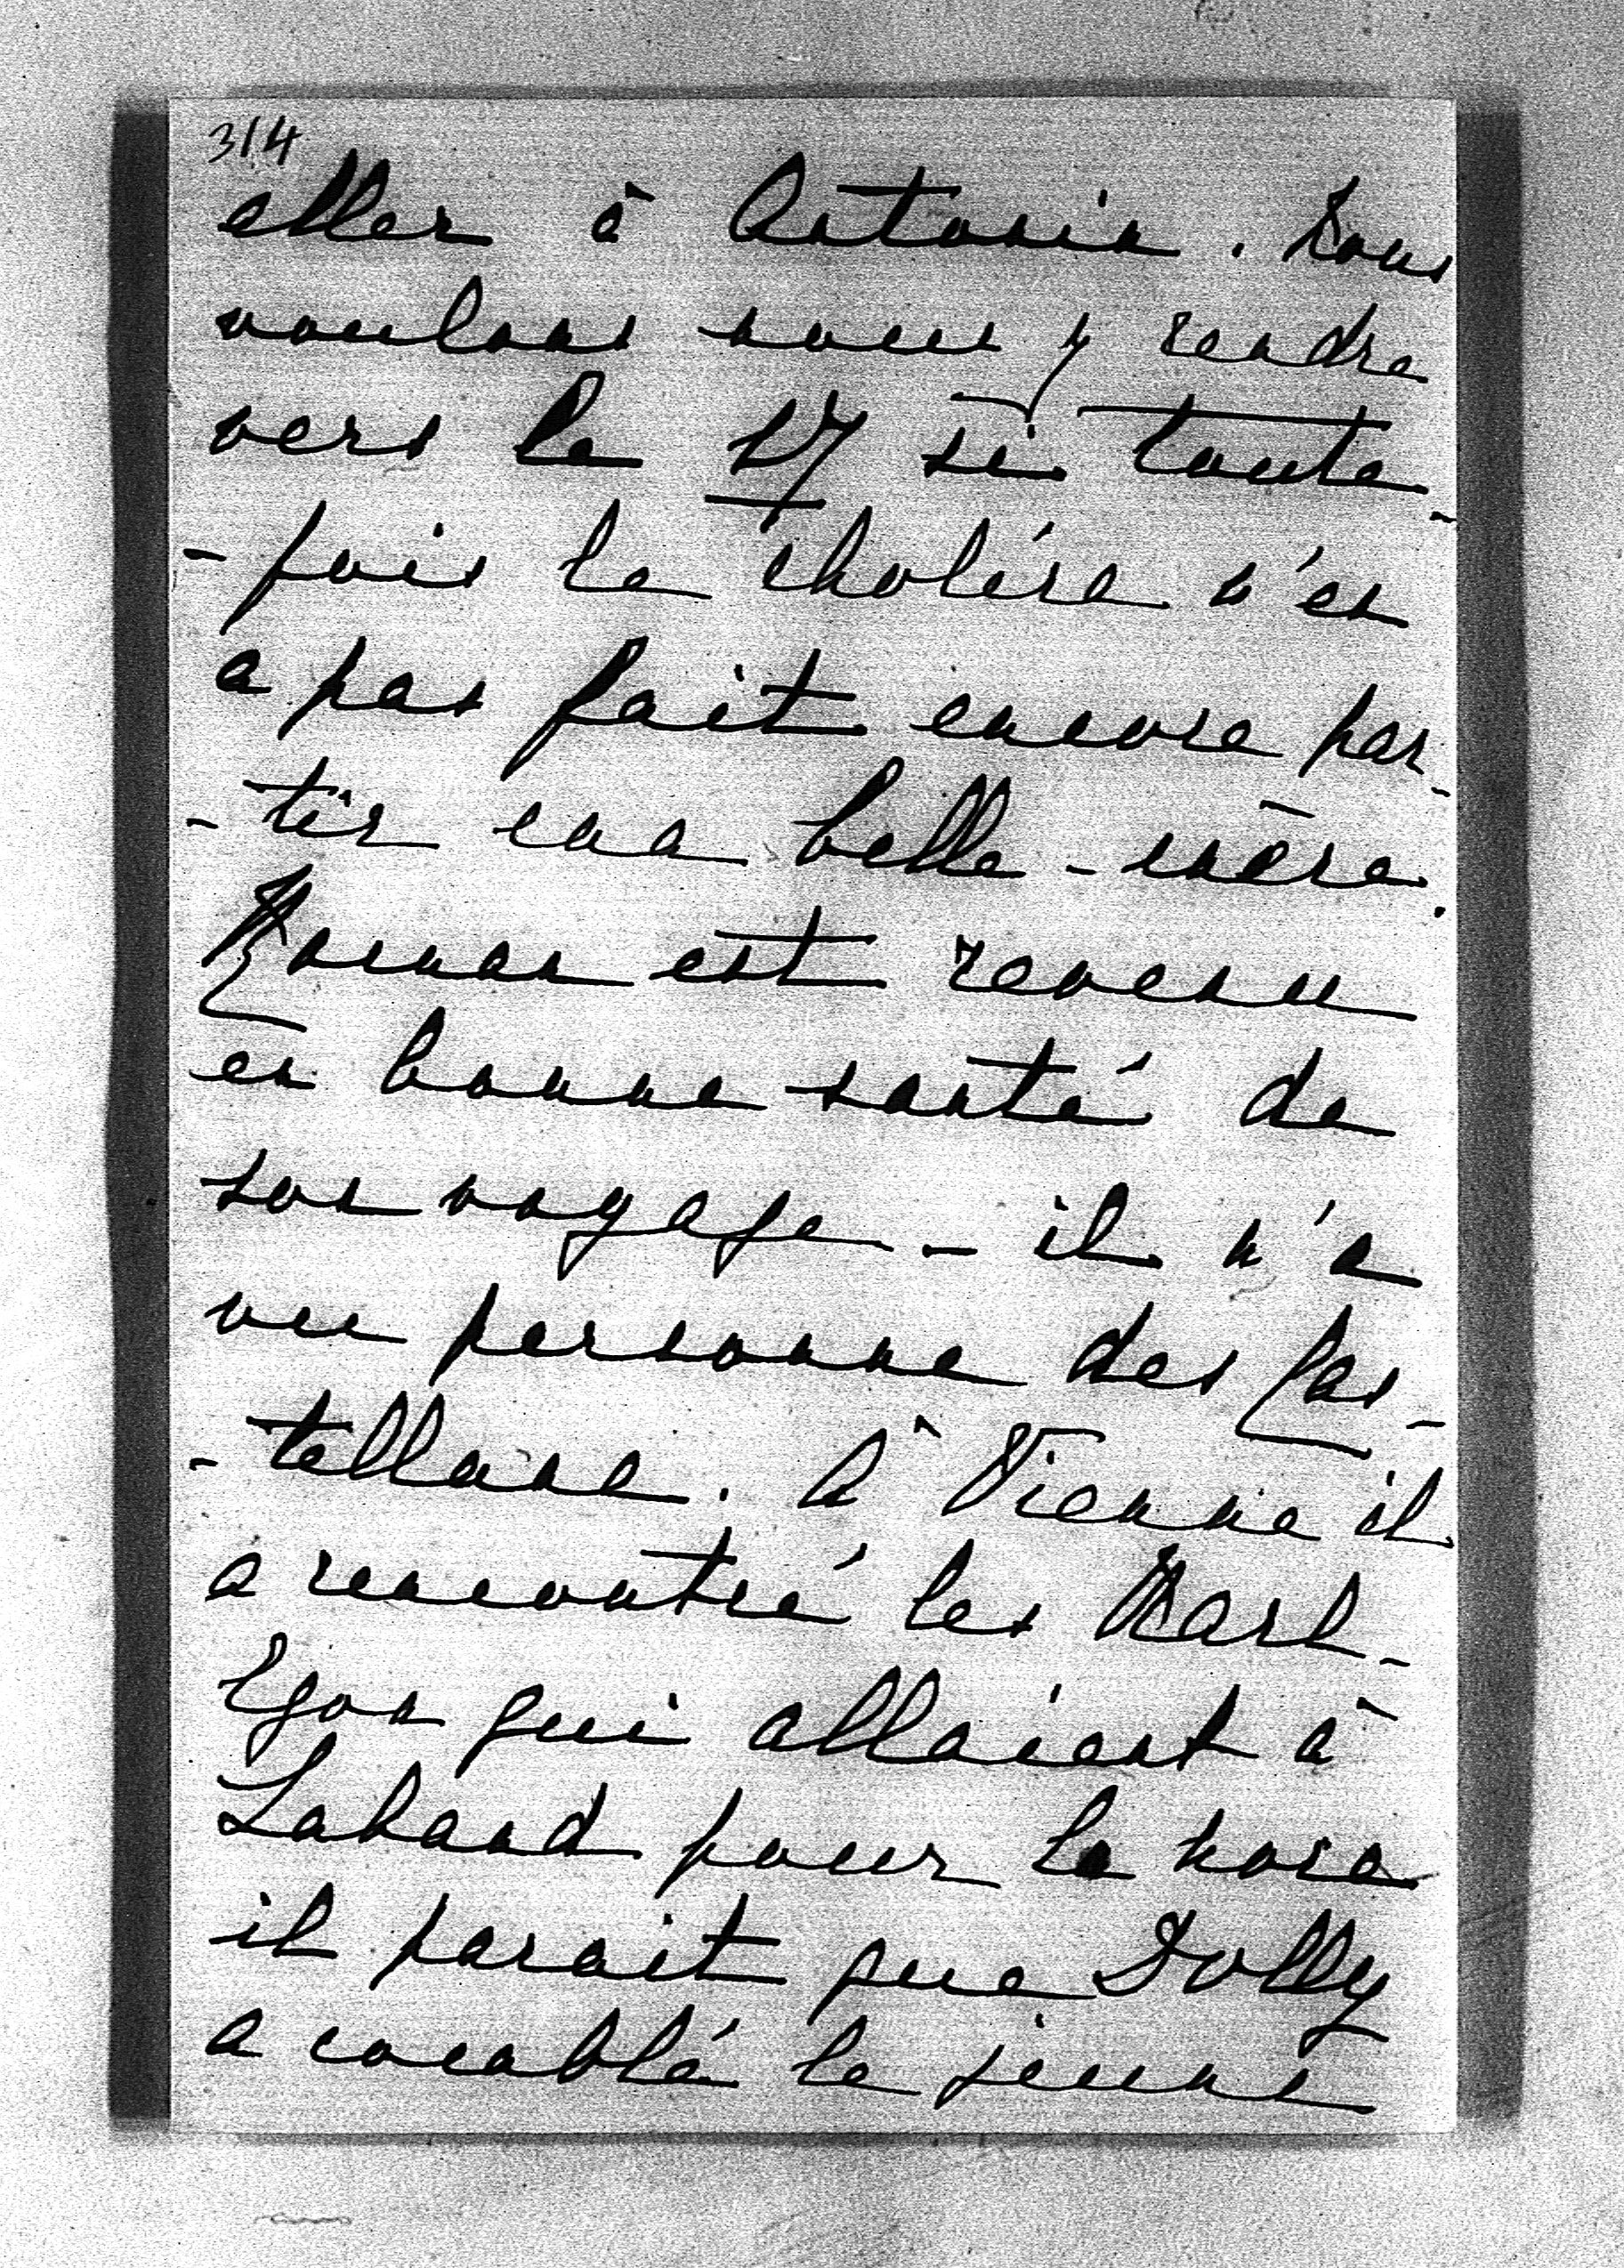 314
aller à Antonin. Nous
voulons nous y rendre
vers le 17 si toute-
-fois le choléra n'en
a pas fait encore par-
-tir ma belle-mère.
Roman est revenu
en bonne santé de
son voyage - il n'a
vu personne des Cas-
-tellane. À Vienne il
a rencontré les Karl-
Egon qui allaient à
Lahand pour la noce
il parait que Dolly
a comblé le jeune